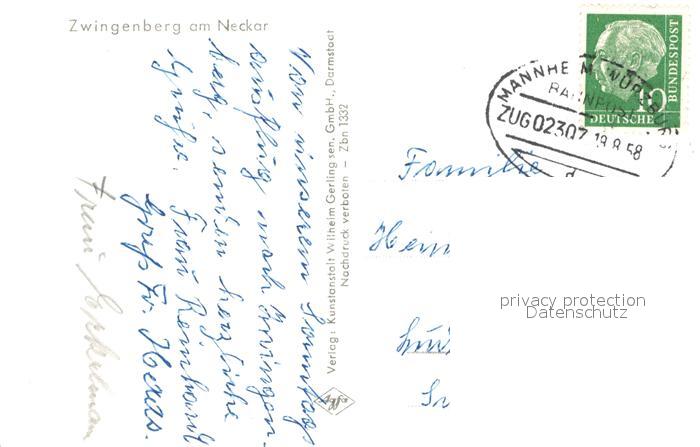 Zwingenberg am Neckar
Von unserem Sonntags
ausflug nach Zwingen-
berg, senden herzliche
Grüße. Frau Reinhard
Gruß Fr.
Frau
Verlag: Kunstanstalt Wilhelm Gerling sen. GmbH., Darmstadt
Nachdruck verboten – Zbn 1332
Agfa
MANNHEIM WÜRZBURG
BAHNPOST
ZUG 02307 19.8.58
d
10
DEUTSCHE BUNDESPOST
Familie
Hein
privacy protection
Datenschutz